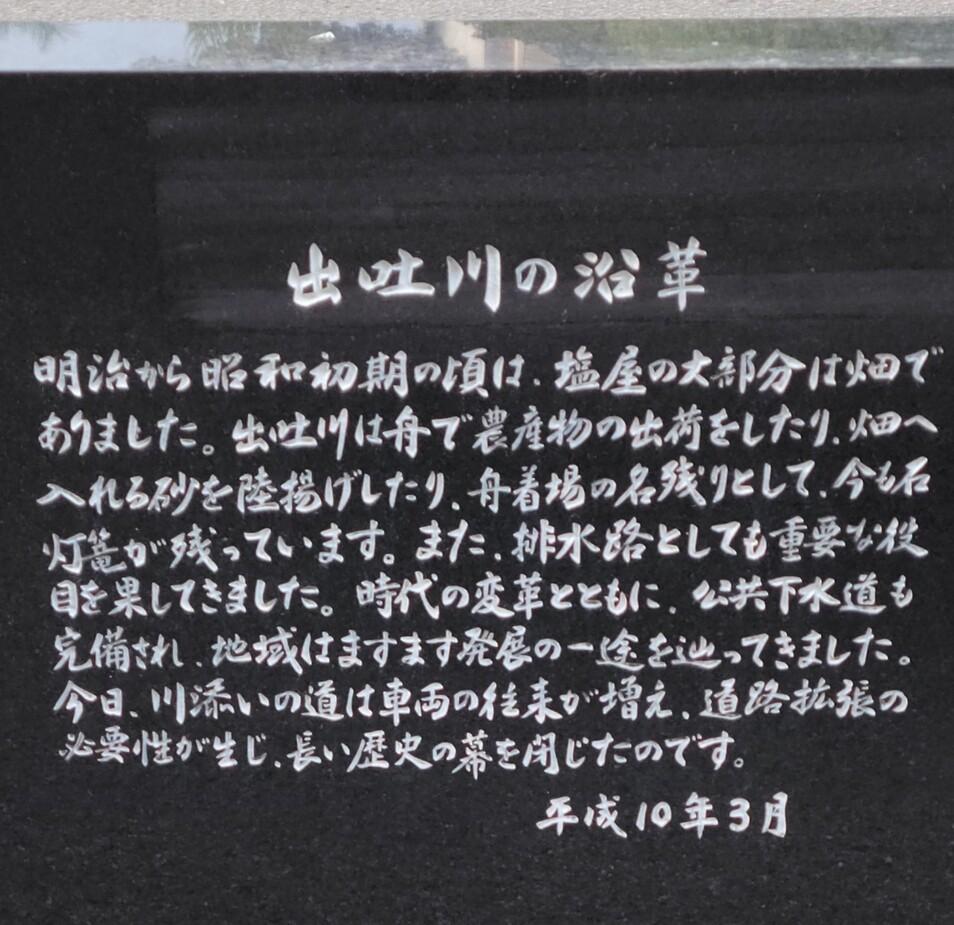 出吐川の沿革
明治から昭和初期の頃は、塩屋の大部分は畑で
ありました。出吐川は舟で農産物の出荷をしたり、畑へ
入れる砂を陸揚げしたり、舟着場の名残りとして、今も石
灯篭が残っています。また、排水路としても重要な役
目を果してきました。時代の変革とともに、公共下水道も
完備され、地域はますます発展の一途を辿ってきました。
今日、川添いの道は車両の往来が増え、道路拡張の
必要性が生じ、長い歴史の幕を閉じたのです。
平成10年3月